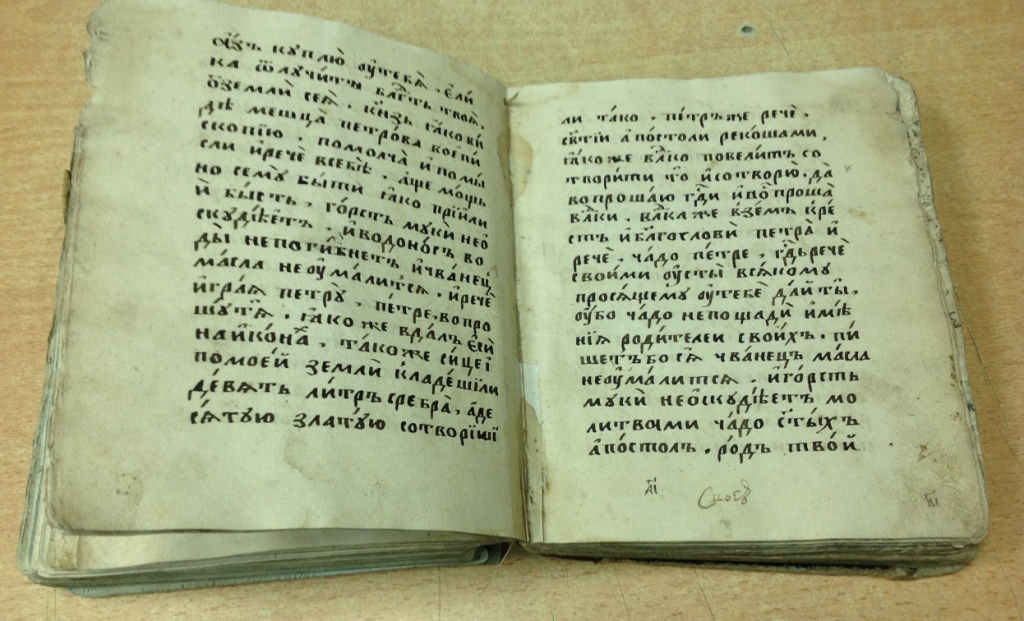 куплю̀ ᲂу҆тебѐ . е҆ли́
ка ѿлучи́ти бл҃гть твоѧ̀ .
ѿземлѝ сеѧ̀ . кн҃зь ꙗ҆́кови́
дѣ мещца̀ петро́ва коє҆пи́
скопїю . помолча̀ и҆помы́
сли и҆речѐ всебѣ̀ . а҆́ще мо́щь
но семꙋ̀ бы́ти ꙗ҆́ко прїи́ли
и҆ бы́сть . го́рсть мꙋкѝ неѡ
скꙋдѣ́етъ . и҆водоно́съ во
ды̀ непоги́бнетъ и҆чва́нец̾
ма́сла неᲂу҆ма́лится . и҆речѐ
и҆гра́ѧ петрꙋ̀ , пе́тре . вопро
шꙋ́тѧ . ꙗ҆́ко же вда́лъ е҆сѝ
наи҆ко́на^х , та́коже си́це і҆
помое́й землѝ кладе́ши ли
де́вять ли́тръ сребра̀ , а҆́де
сѧ́тую злату́ю сотвори́ши
ли та́ко . пе́тръ же речѐ ,
ст҃ії а҆по́столи реко́шами ,
ꙗ҆́коже вл҃ко повели́тъ со
твори́ти что̀ и҆сотворю̀ . да̀
вопроша́ю гд҇и и҆вопроша̀
вл҃ки . вл҃ка же вземъ кре́
стъ и҆блгословѝ петра̀ и҆
речѐ . ча́до пе́тре , гд҇ь речѐ
свои́ми ᲂу҆сты̀ вся́кому
прося́щему ᲂу҆тебѐ да́й ты̀ ,
ᲂу҆́бо ча́до непощадѝ и҆мѣ́
нїѧ роди́телеи свои́хъ . пи́
шетъ бо сѧ̀ чва́нецъ ма́сла
неᲂу҆ма́лится . и҆го́рсть
мꙋкѝ неѡскꙋдѣ́етъ мо
ли́твами ча́до ст҃ы́хъ
а҆по́столъ . ро́дъ твои̏
а҃і